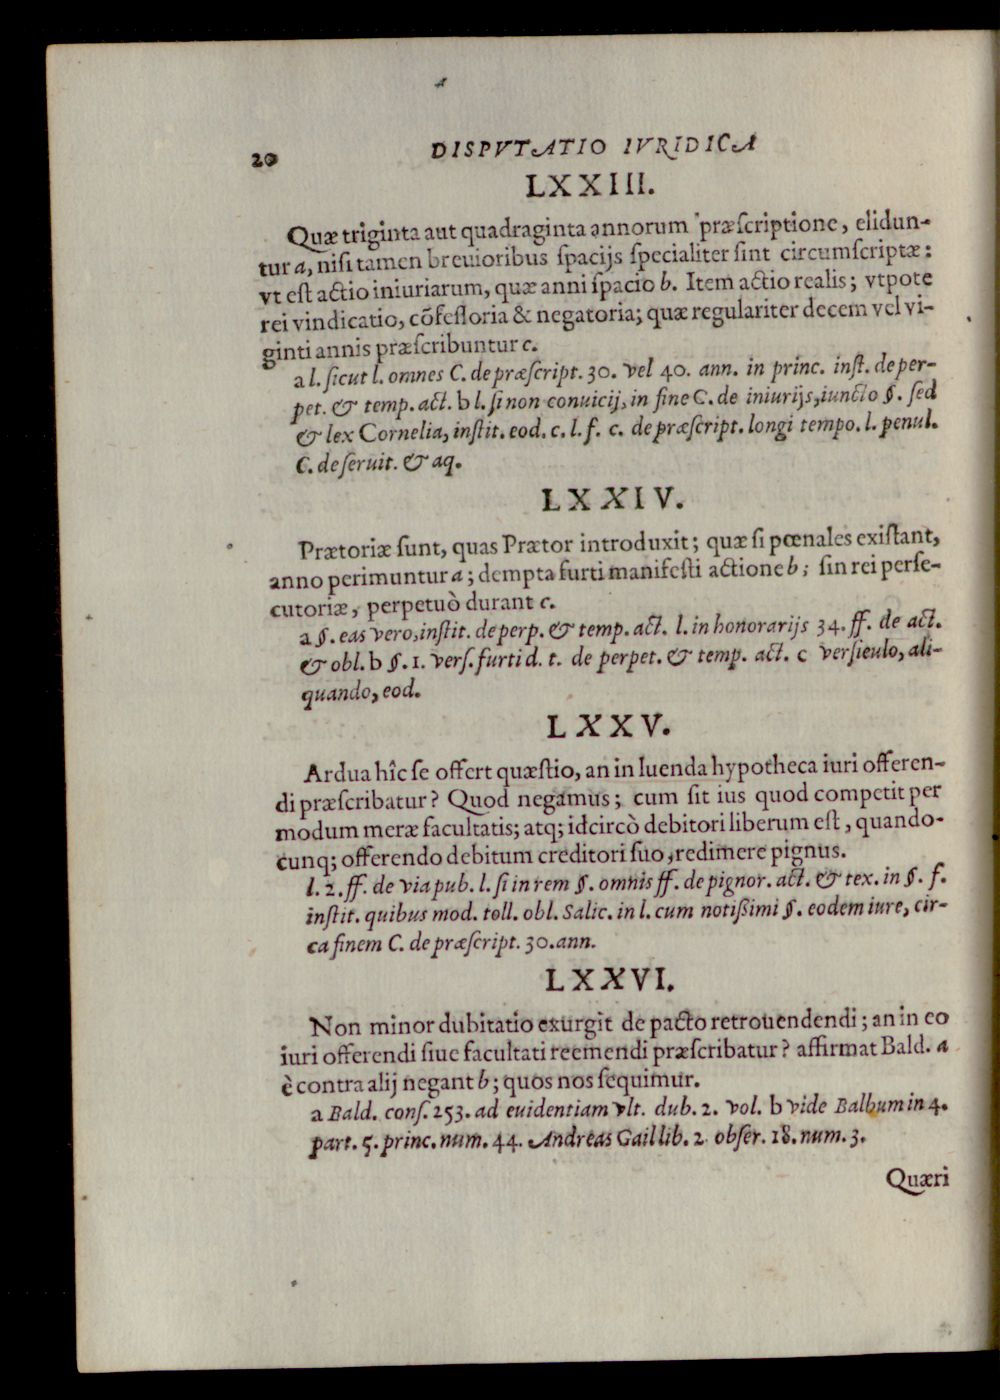 20 DISPVTATIO IVRIDICA
LXXIII.
Quæ triginta aut quadraginta annorum præſcriptione, elidun-
tur a, niſi tamen breuioribus ſpacijs ſpecialiter ſint circumſcriptæ:
vt eſt actio iniuriarum, quæ anni ſpacio b. Item actio realis; vtpote
rei vindicatio, cõfeſſoria & negatoria; quæ regulariter decem vel vi-
ginti annis præſcribuntur c.
a l. ſicut l. omnes C. de præſcript. 30. vel 40. ann. in princ. inſt. de per-
pet. & temp. act. b l. ſi non conuicij, in fine C. de iniurijs, iuncto §. ſed
& lex Cornelia, inſtit. eod. c. l. f. c. de præſcript. longi tempo. l. penul.
C. de ſeruit. & aq.
LXXIV.
Prætoriæ ſunt, quas Prætor introduxit; quæ ſi pœnales exiſtant,
anno perimuntur a; dempta furti manifeſti actione b; ſin rei perſe-
cutoriæ, perpetuò durant c.
a §. eas vero, inſtit. de perp. & temp. act. l. in honorarijs 34. ff. de act.
& obl. b §. 1. verſ. furti d. t. de perpet. & temp. act. c verſieulo, ali-
quando, eod.
LXXV.
Ardua hîc ſe offert quæſtio, an in luenda hypotheca iuri offeren-
di præſcribatur? Quod negamus; cum ſit ius quod competit per
modum meræ facultatis; atq; idcircò debitori liberum eſt, quando-
cunq; offerendo debitum creditori ſuo, redimere pignus.
l. 2. ff. de via pub. l. ſi in rem §. omnis ff. de pignor. act. & tex. in §. f.
inſtit. quibus mod. toll. obl. Salic. in l. cum notißimi §. eodem iure, cir-
ca finem C. de præſcript. 30. ann.
LXXVI.
Non minor dubitatio exurgit de pacto retrouendendi; an in eo
iuri offerendi ſiue facultati reemendi præſcribatur? affirmat Bald. a
è contra alij negant b; quos nos ſequimur.
a Bald. conſ. 253. ad euidentiam vlt. dub. 2. vol. b vide Balbum in 4.
part. 5. princ. num. 44. Andreas Gail lib. 2. obſer. 18. num. 3.
Quæri